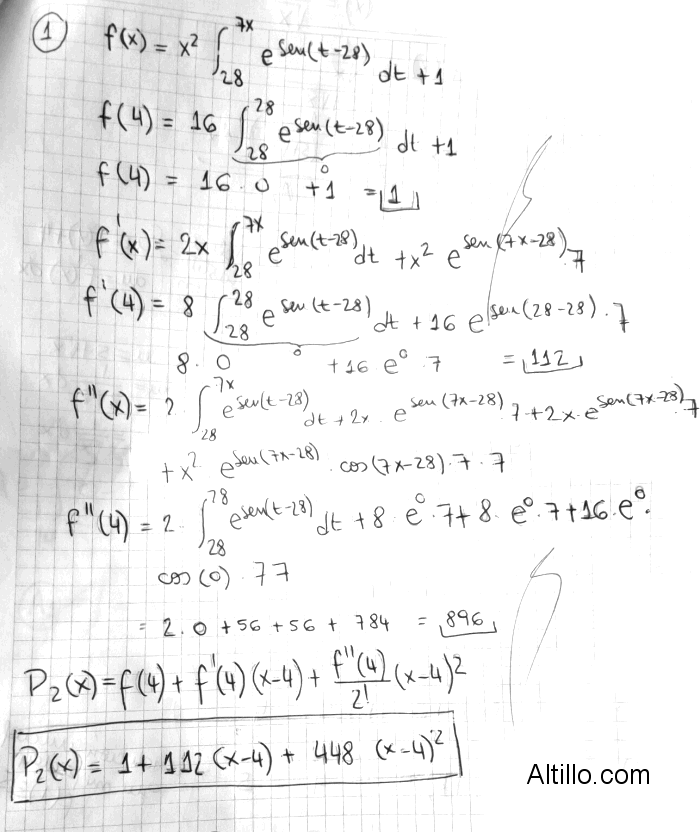 ① f(x) = x² ∫₂₈^7x e^sen(t-28) dt + 1
f(4) = 16 ∫₂₈^28 e^sen(t-28) dt + 1
0
f(4) = 16 . 0 + 1 = 1
f'(x) = 2x ∫₂₈^7x e^sen(t-28) dt + x² e^sen(7x-28) . 7
f'(4) = 8 ∫₂₈^28 e^sen(t-28) dt + 16 e^sen(28-28) . 7
0
8 . 0 + 16 e⁰ . 7 = 112
f''(x) = 2 . ∫₂₈^7x e^sen(t-28) dt + 2x . e^sen(7x-28) . 7 + 2x . e^sen(7x-28) . 7
+ x² e^sen(7x-28) . cos(7x-28) . 7 . 7
f''(4) = 2 . ∫₂₈^28 e^sen(t-28) dt + 8 . e⁰ . 7 + 8 . e⁰ . 7 + 16 . e⁰ .
cos(0) . 7 7
= 2 . 0 + 56 + 56 + 784 = 896
P₂(x) = f(4) + f'(4) (x-4) + f''(4)/2! (x-4)²
P₂(x) = 1 + 112 (x-4) + 448 (x-4)²
Altillo.com